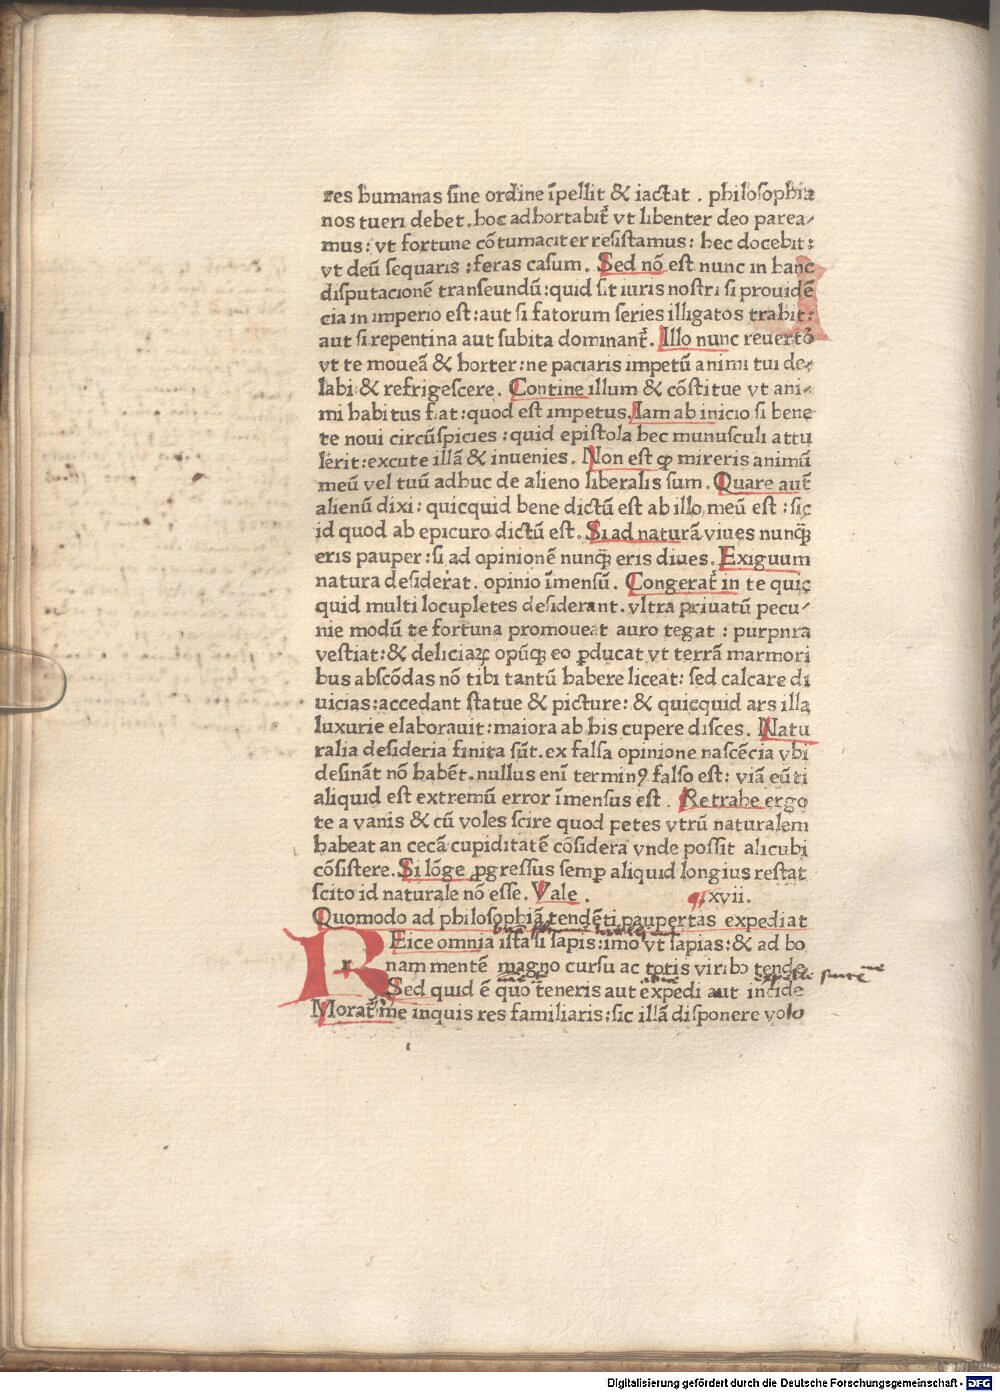 res humanas sine ordine īpellit & iactat . philosophia
nos tueri debet . hoc adhortabit̄ vt libenter deo parea⸗
mus : vt fortune cōtumaciter resistamus : hec docebit :
vt deū sequaris : feras casum . Sed nō est nunc in hanc
disputacionē transeundū : quid sit iuris nostri si prouidē
cia in imperio est : aut si fatorum series illigatos trahit :
aut si repentina aut subita dominant̄ . Illo nunc reuertō
vt te moueā & horter : ne paciaris impetū animi tui de⸗
labi & refrigescere . Contine illum & cōstitue vt ani⸗
mi habitus fiat : quod est impetus . Iam ab inicio si bene
te noui circūspicies : quid epistola hec munusculi attu
lerit : excute illā & inuenies . Non est ꝙ mireris animū
meū vel tuū adhuc de alieno liberalis sum . Quare aut̄
alienū dixi : quicquid bene dictū est ab illo meū est : sic
id quod ab epicuro dictū est . Si ad naturā viues nunq̄
eris pauper : si ad opinionē nunq̄ eris diues . Exiguum
natura desiderat . opinio īmensū . Congerat̄ in te quic
quid multi locupletes desiderant . vltra priuatū pecu⸗
nie modū te fortuna promoueat auro tegat : purpnra
vestiat : & deliciaꝝ opūq̄ eo ꝑducat vt terrā marmori
bus abscōdas nō tibi tantū habere liceat : sed calcare di
uicias : accedant statue & picture : & quicquid ars illa
luxurie elaborauit : maiora ab his cupere disces . Natu
ralia desideria finita sūt . ex falsa opinione nascēcia vbi
desināt nō habēt . nullus enī terminꝰ falso est : viā eūti
aliquid est extremū error īmensus est . Retrahe ergo
te a vanis & cū voles scire quod petes vtrū naturalem
habeat an cecā cupiditatē cōsidera vnde possit alicubi
cōsistere . Si lōge ꝓgressus semꝑ aliquid longius restat
scito id naturale nō esse . Vale . xvii.
Quomodo ad philosophiā tendēti paupertas expediat
REice omnia ista si sapis : imo vt sapias : & ad bo
nam mentē magno cursu ac totis viribo tende
Sed quid ē quo t̄eneris aut expedi aut incide
Morat̄ me inquis res familiaris : sic illā disponere volo
Digitalisierung gefördert durch die Deutsche Forschungsgemeinschaft - DFG